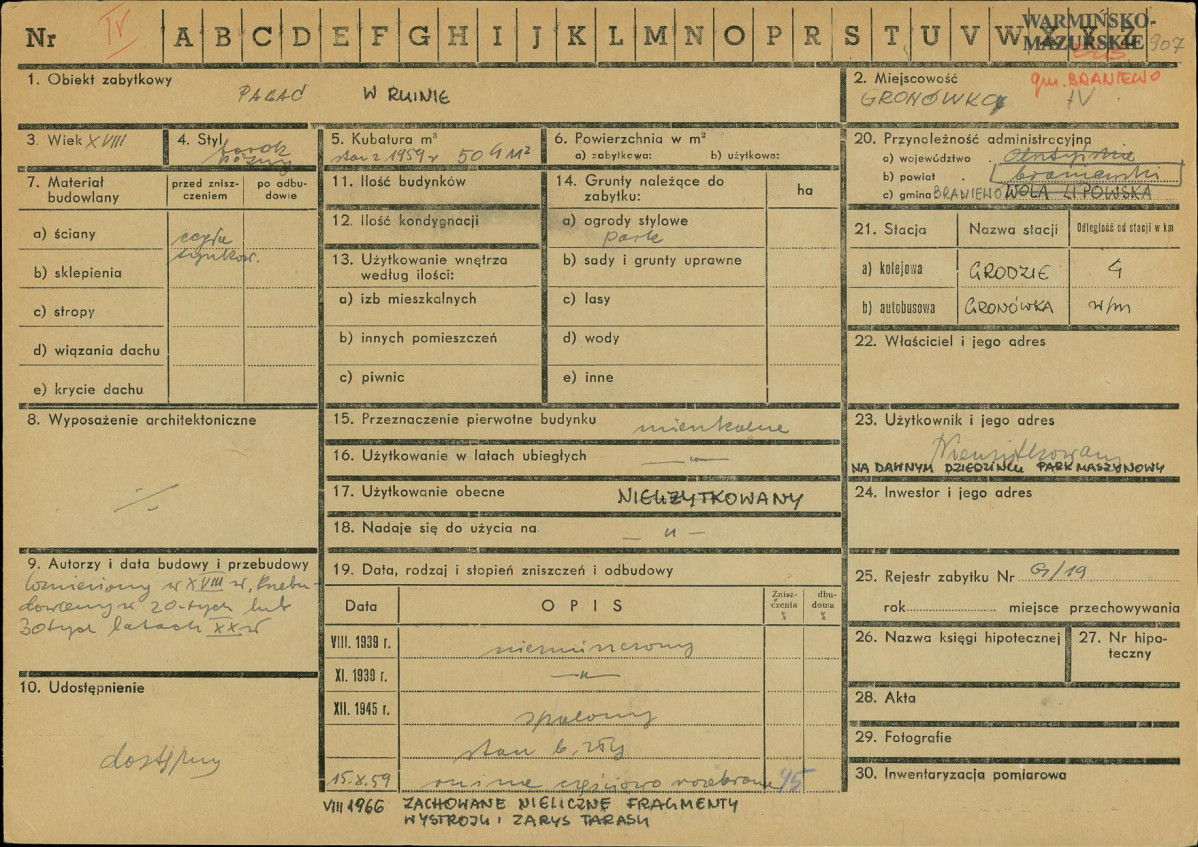 Nr IV A B C D E F G H I J K L M N O P R S T U V W X Y Z 907
WARMIŃSKO-
MAZURSKIE
1. Obiekt zabytkowy
PAŁAC W RUINIE
2. Miejscowość
gm. BRANIEWO
GRONÓWKO IV
3. Wiek XVIII
4. Styl barok
późny
5. Kubatura m³
stan z 1959 r 504 m²
6. Powierzchnia w m²
a) zabytkowa: b) użytkowa:
7. Materiał budowlany
przed zniszczeniem
po odbudowie
a) ściany cegła
tynkow.
b) sklepienia
c) stropy
d) wiązania dachu
e) krycie dachu
11. Ilość budynków
12. Ilość kondygnacji
13. Użytkowanie wnętrza
według ilości:
a) izb mieszkalnych
b) innych pomieszczeń
c) piwnic
14. Grunty należące do
zabytku:
ha
a) ogrody stylowe
park
b) sady i grunty uprawne
c) lasy
d) wody
e) inne
20. Przynależność administracyjna
a) województwo . olsztyńskie
b) powiat . braniewski
c) gmina BRANIEWO WOLA LIPOWSKA
21. Stacja Nazwa stacji Odległość od stacji w km
a) kolejowa GRODZIE 4
b) autobusowa GRONÓWKA w/m
22. Właściciel i jego adres
8. Wyposażenie architektoniczne
15. Przeznaczenie pierwotne budynku mieszkalne
16. Użytkowanie w latach ubiegłych — „ —
17. Użytkowanie obecne NIEUŻYTKOWANY
18. Nadaje się do użycia na — „ —
23. Użytkownik i jego adres
Nieużytkowany
NA DAWNYM DZIEDZIŃCU PARK MASZYNOWY
24. Inwestor i jego adres
9. Autorzy i data budowy i przebudowy
Wzniesiony w XVIII w, Przebu-
dowany w 20-tych lub
30tych latach XX w
10. Udostępnienie
dostępny
19. Data, rodzaj i stopień zniszczeń i odbudowy
Data OPIS Zniszczenia % dbudowa %
VIII. 1939 r. niezniszczony
XI. 1939 r. — „ —
XII. 1945 r. spalony
stan b. zły
15.X.59 ruina częściowo rozebrana 95
VIII 1966 ZACHOWANE NIELICZNE FRAGMENTY
WYSTROJU I ZARYS TARASU
25. Rejestr zabytku Nr G/19
rok miejsce przechowywania
26. Nazwa księgi hipotecznej
27. Nr hipo-
teczny
28. Akta
29. Fotografie
30. Inwentaryzacja pomiarowa